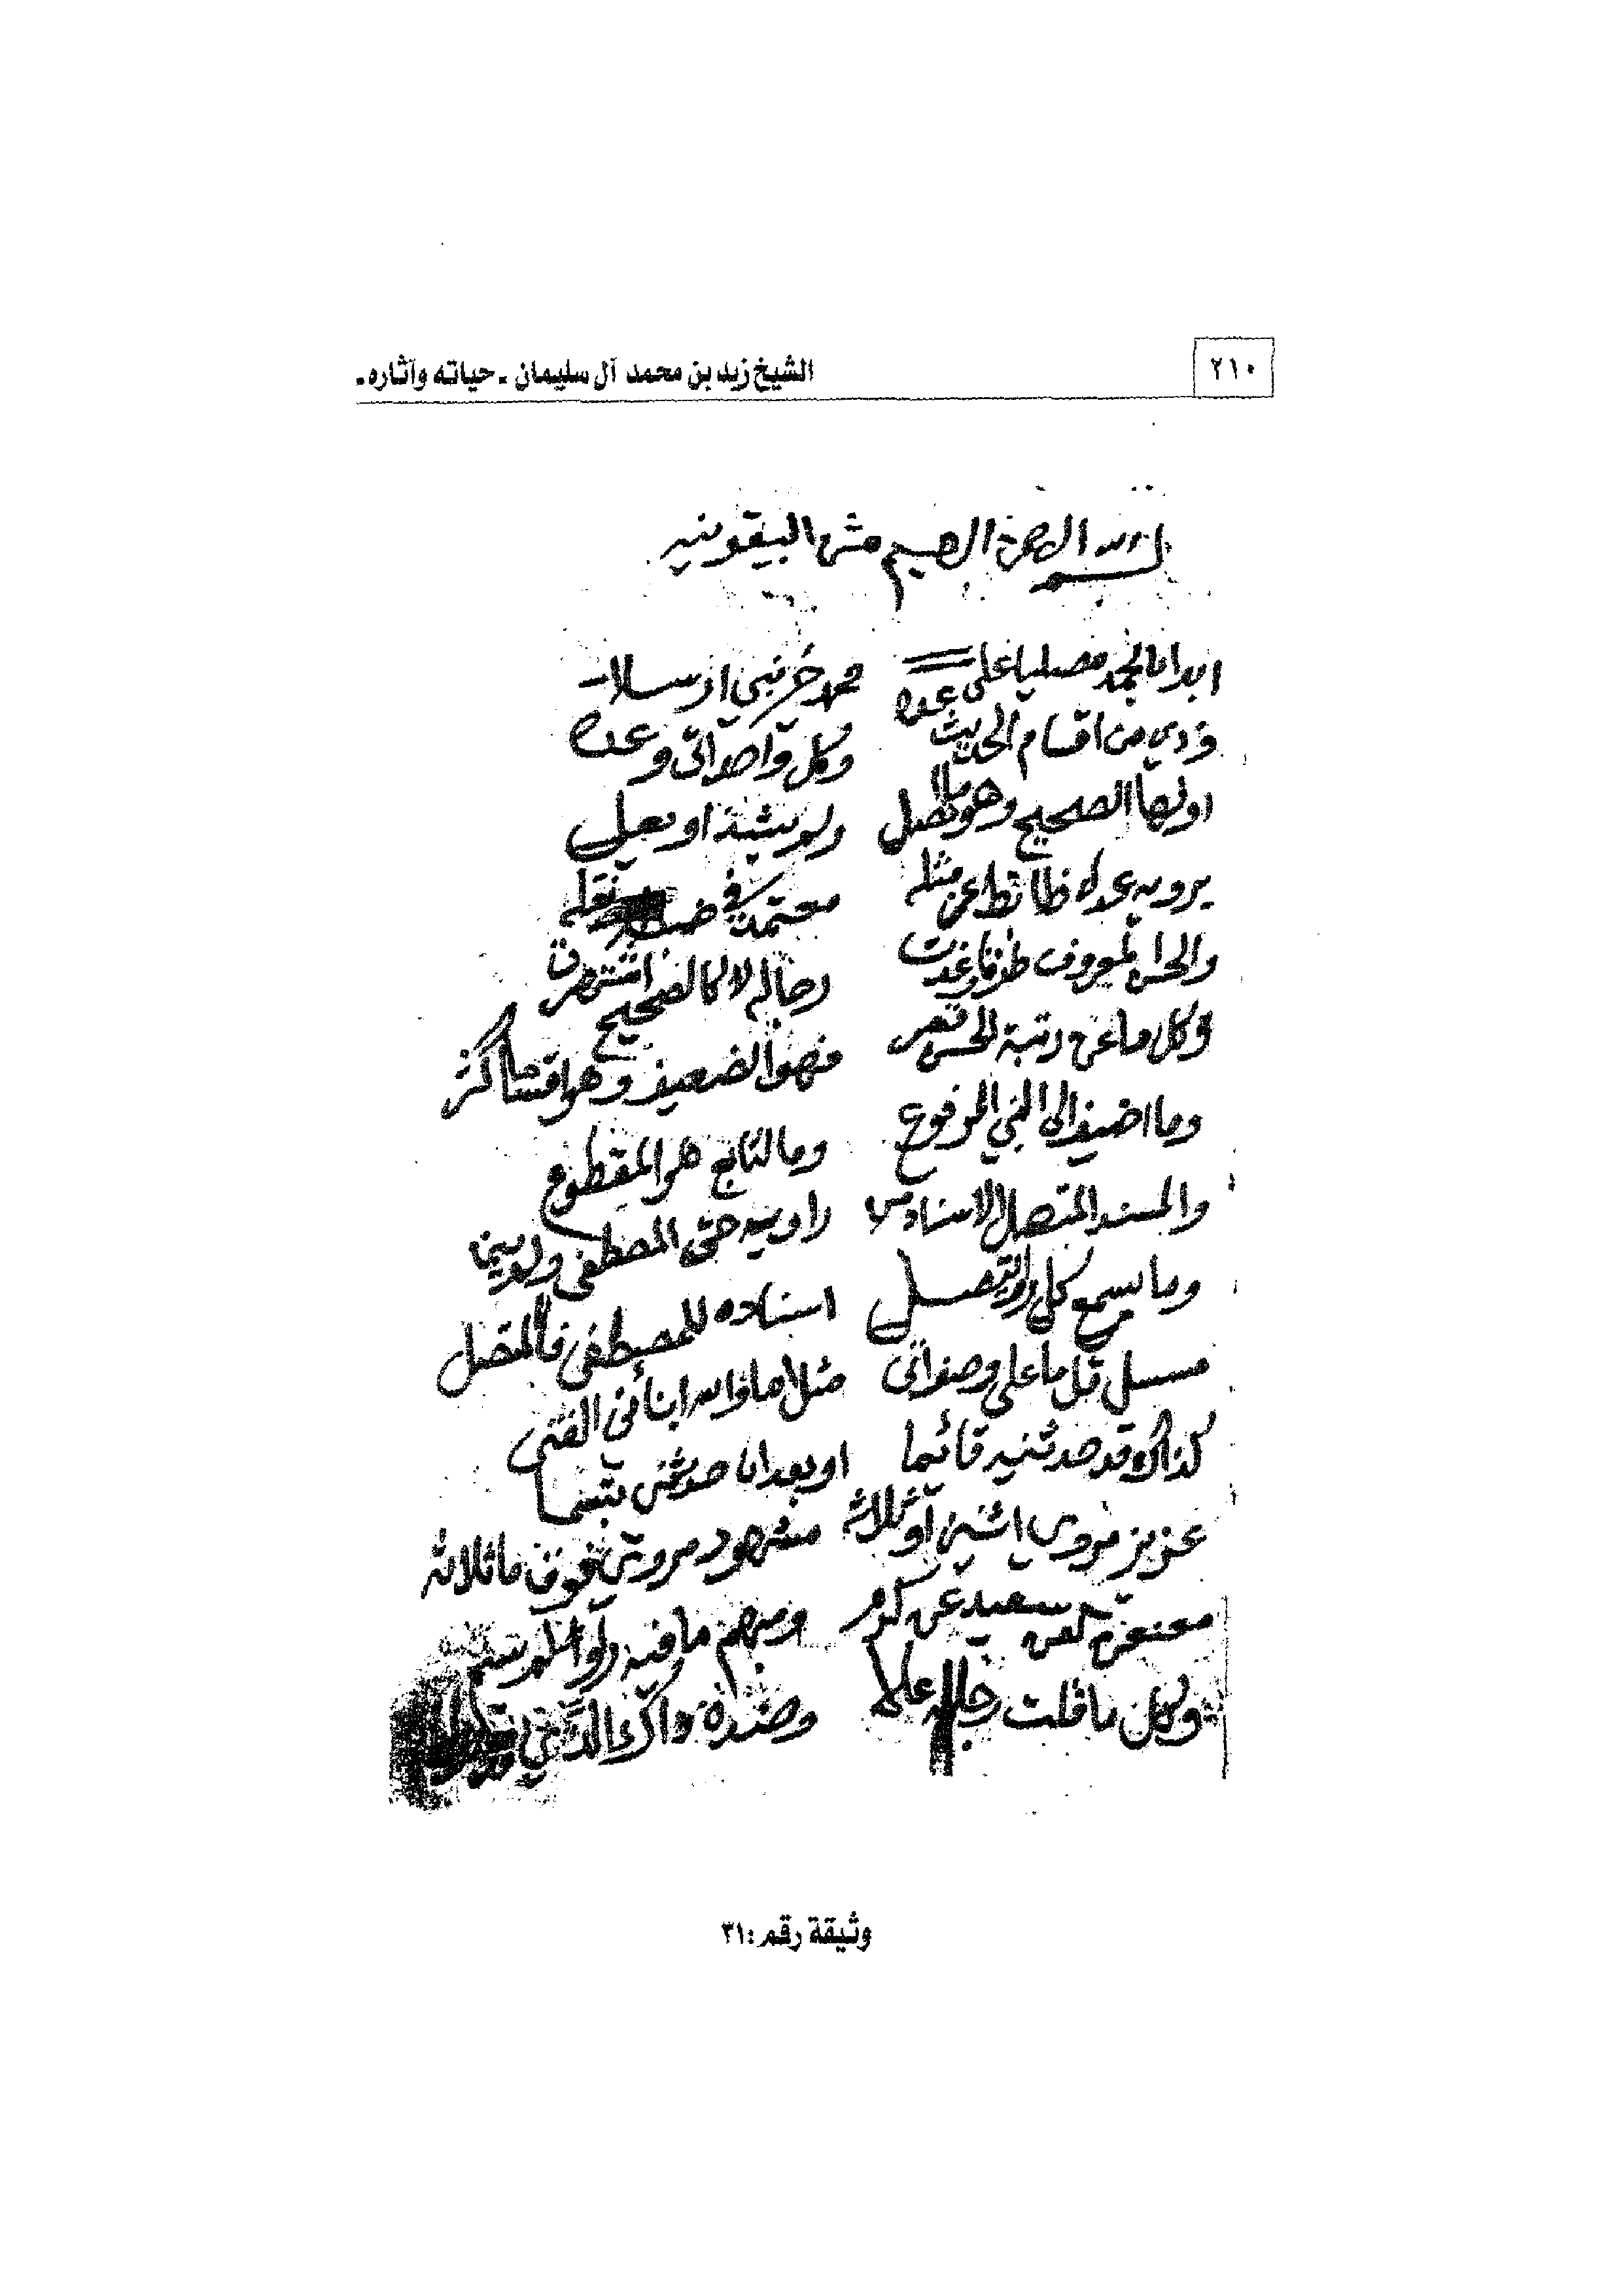 ٢١٠ الشيخ زيد بن محمد آل سليمان ـ حياته وآثاره ـ
بسم الله الرحمن الرحيم متن البيقونيه
ابدا بالحمد مصليا على محمد خير نبي ارسلا
وذي من اقسام الحديث عده وكل واحد اتى وعده
اولها الصحيح وهو ما اتصل ولم يشذ او يعل
يرويه عدل ضابط عن مثله معتمد في ضبطه ونقله
والحسن المعروف طرقا وغدت رجاله لا كالصحيح اشتهرت
وكل ما عن رتبة الحسن قصر فهو الضعيف وهو اقساما كثر
وما اضيف الى النبي المرفوع وما لتابع هو المقطوع
والمسند المتصل الاسناد من راويه حتى المصطفى ولم يبن
وما بسمع كل راو يتصل اسناده للمصطفى فالمتصل
مسلسل قل ما على وصف اتى مثل اما والله انبأني الفتى
كذاك قد حدثنيه قائما او بعد ان حدثني تبسما
عزيز مروي اثنين او ثلاثه مشهور مروي فوق ما ثلاثه
معنعن كعن سعيد عن كرم ومبهم ما فيه راو لم يسم
وكل ما قلت رجاله علا وضده ذاك الذي
وثيقة رقم: ٣١